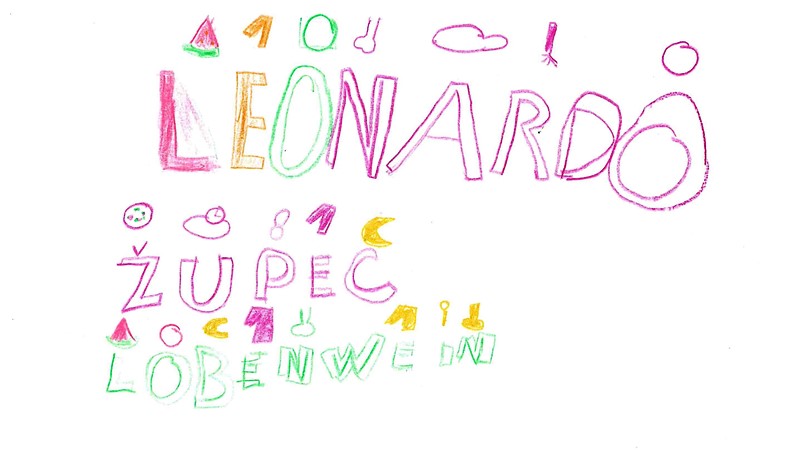 LEONARDO
ŽUPEC
LOBENWEIN